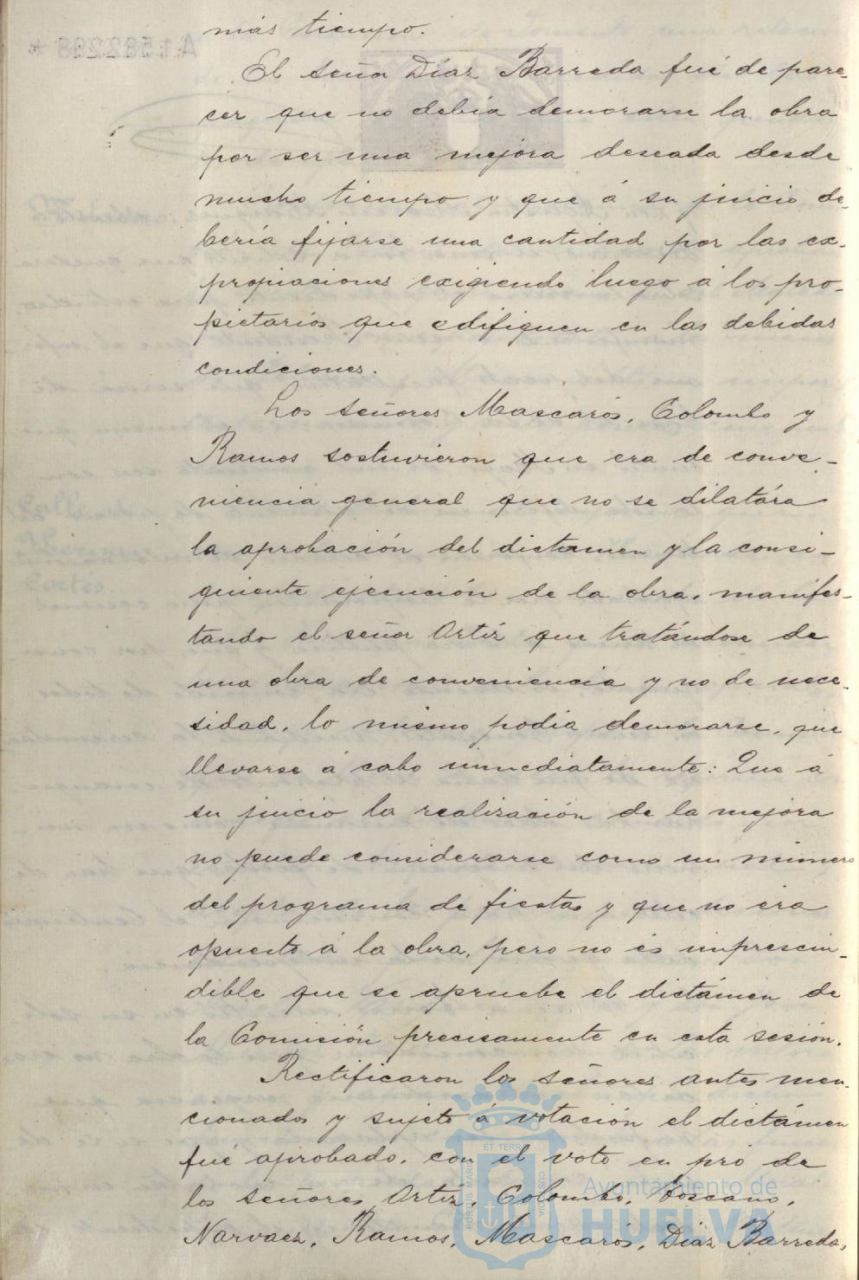 más tiempo.
El señor Díaz Barreda fué de pare-
cer que no debía demorarse la obra
por ser una mejora deseada desde
mucho tiempo y que á su juicio de-
bería fijarse una cantidad por las ex-
propiaciones exigiendo luego á los pro-
pietarios que edifiquen en las debidas
condiciones.
Los señores Mascarós, Colombo y
Ramos sostuvieron que era de conve-
niencia general que no se dilatára
la aprobación del dictamen y la consi-
guiente ejecución de la obra, manifes-
tando el señor Ortiz que tratándose de
una obra de conveniencia y no de nece-
sidad, lo mismo podía demorarse, que
llevarse á cabo inmediatamente: Que á
su juicio la realización de la mejora
no puede considerarse como un número
del programa de fiestas y que no era
opuesto á la obra, pero no és imprescin-
dible que se apruebe el dictámen de
la Comisión precisamente en esta sesión.
Rectificaron los señores antes men-
cionados y sujeto a votación el dictámen
fué aprobado, con el voto en pró de
los señores, Ortiz, Colombo, Toscano,
Narvaez, Ramos, Mascarós, Díaz Barreda,
Ayuntamiento de
HUELVA